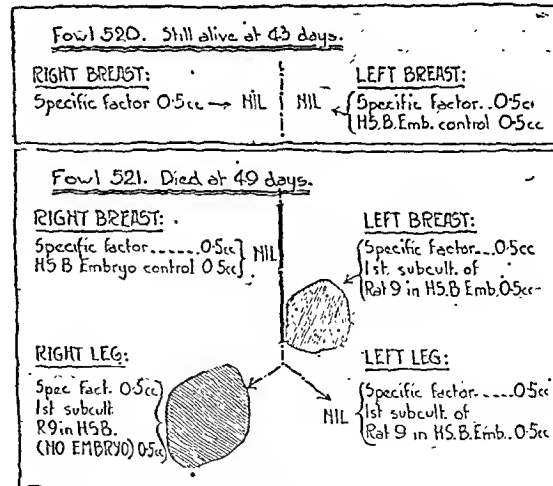 Fowl 520. Still alive at 43 days.
RIGHT BREAST:
Specific factor 0·5cc → NIL
NIL
LEFT BREAST:
Specific factor..0·5cc
HS.B.Emb. control 0·5cc
Fowl 521. Died at 49 days.
RIGHT BREAST:
Specific factor......0·5cc
HS B Embryo control 0·5cc
NIL
LEFT BREAST:
Specific factor....0·5cc
1st. subcult. of
Rat 9 in HS.B Emb. 0·5cc
RIGHT LEG:
Spec Fact. 0·5cc
1st subcult
R9 in HSB.
(NO EMBRYO) 0·5cc
LEFT LEG:
NIL
Specific factor.....0·5cc
1st subcult. of
Rat 9 in HS.B.Emb..0·5cc